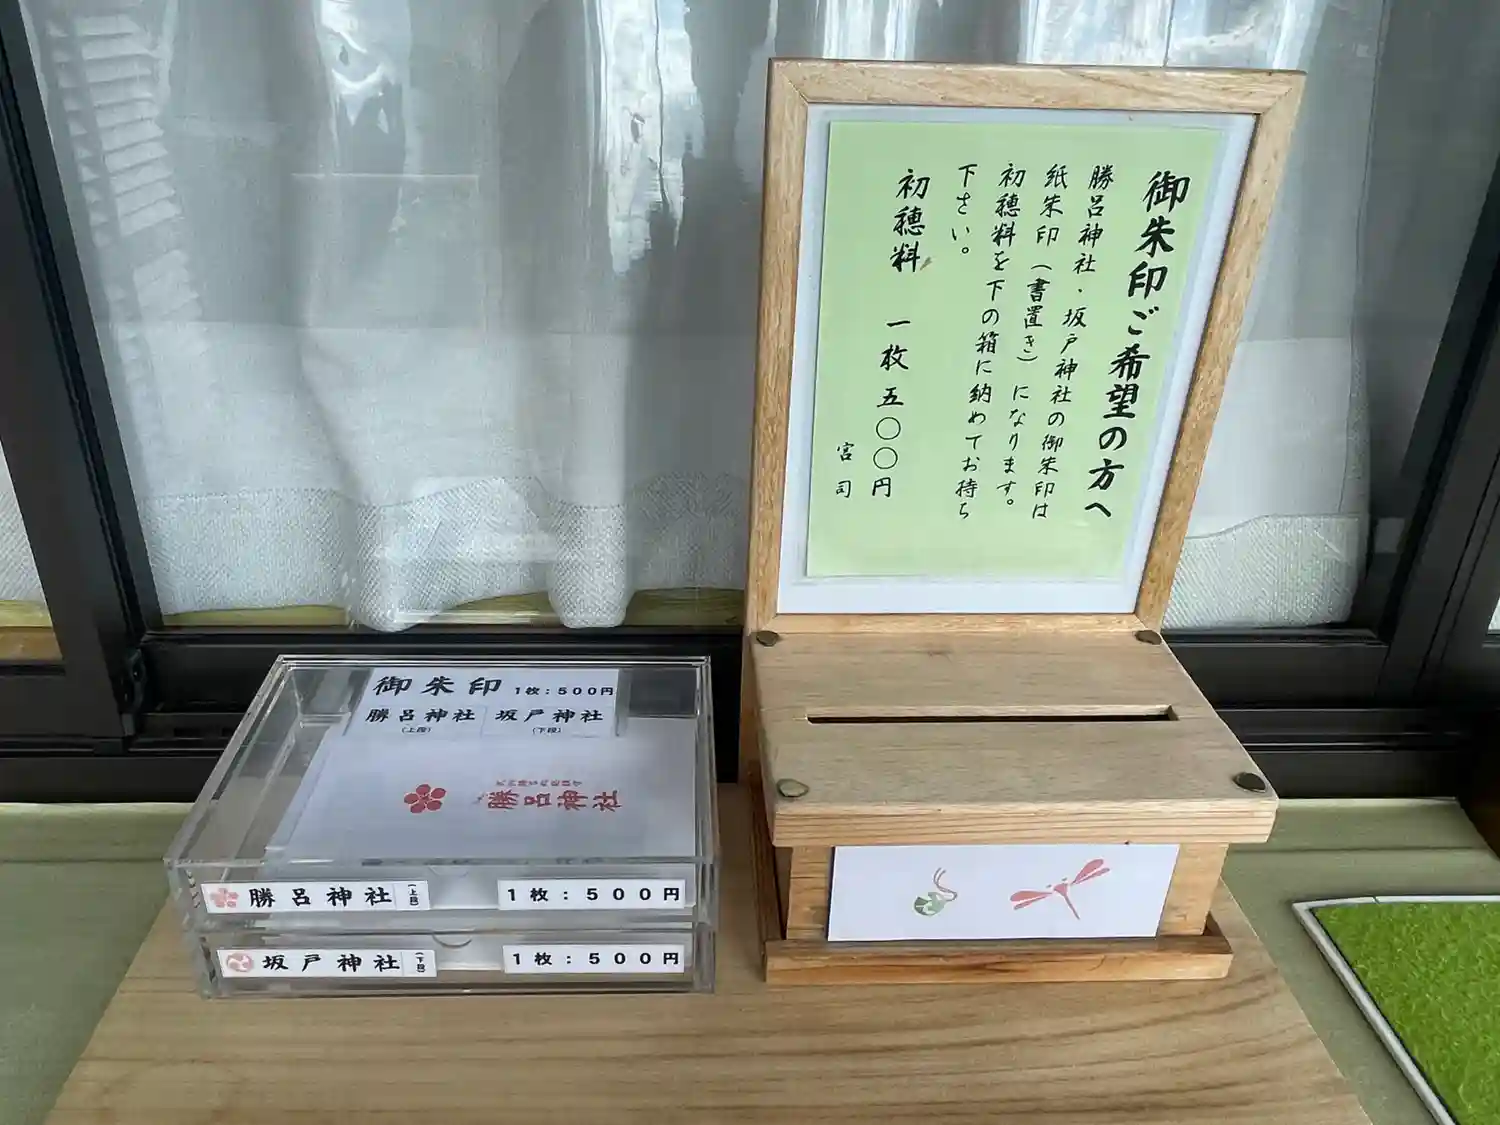 御朱印ご希望の方へ
勝呂神社・坂戸神社の御朱印は
紙朱印（書置き）になります。
初穂料を下の箱に納めてお持ち
下さい。
初穂料 一枚 五〇〇円
宮司
御朱印 1枚：500円
勝呂神社 坂戸神社
(上段) (下段)
勝呂神社
勝呂神社 (上段) 1枚：500円
坂戸神社 (下段) 1枚：500円